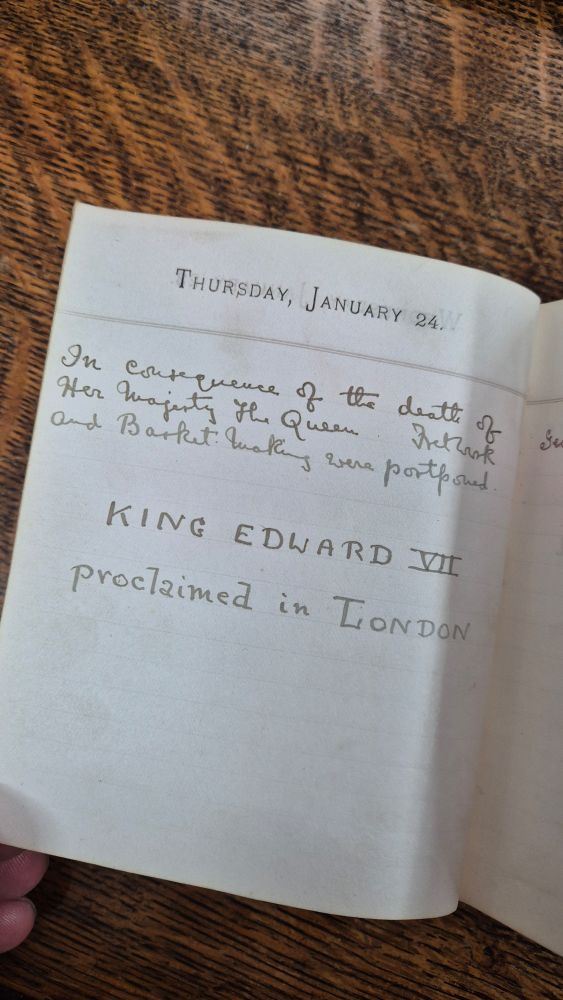 THURSDAY, JANUARY 24.
In consequence of the death of
Her Majesty The Queen. Fretwork
and Basket Making were postponed.
KING EDWARD VII
proclaimed in LONDON